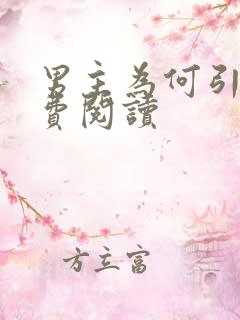 男主為何引
費閱讀
方立富